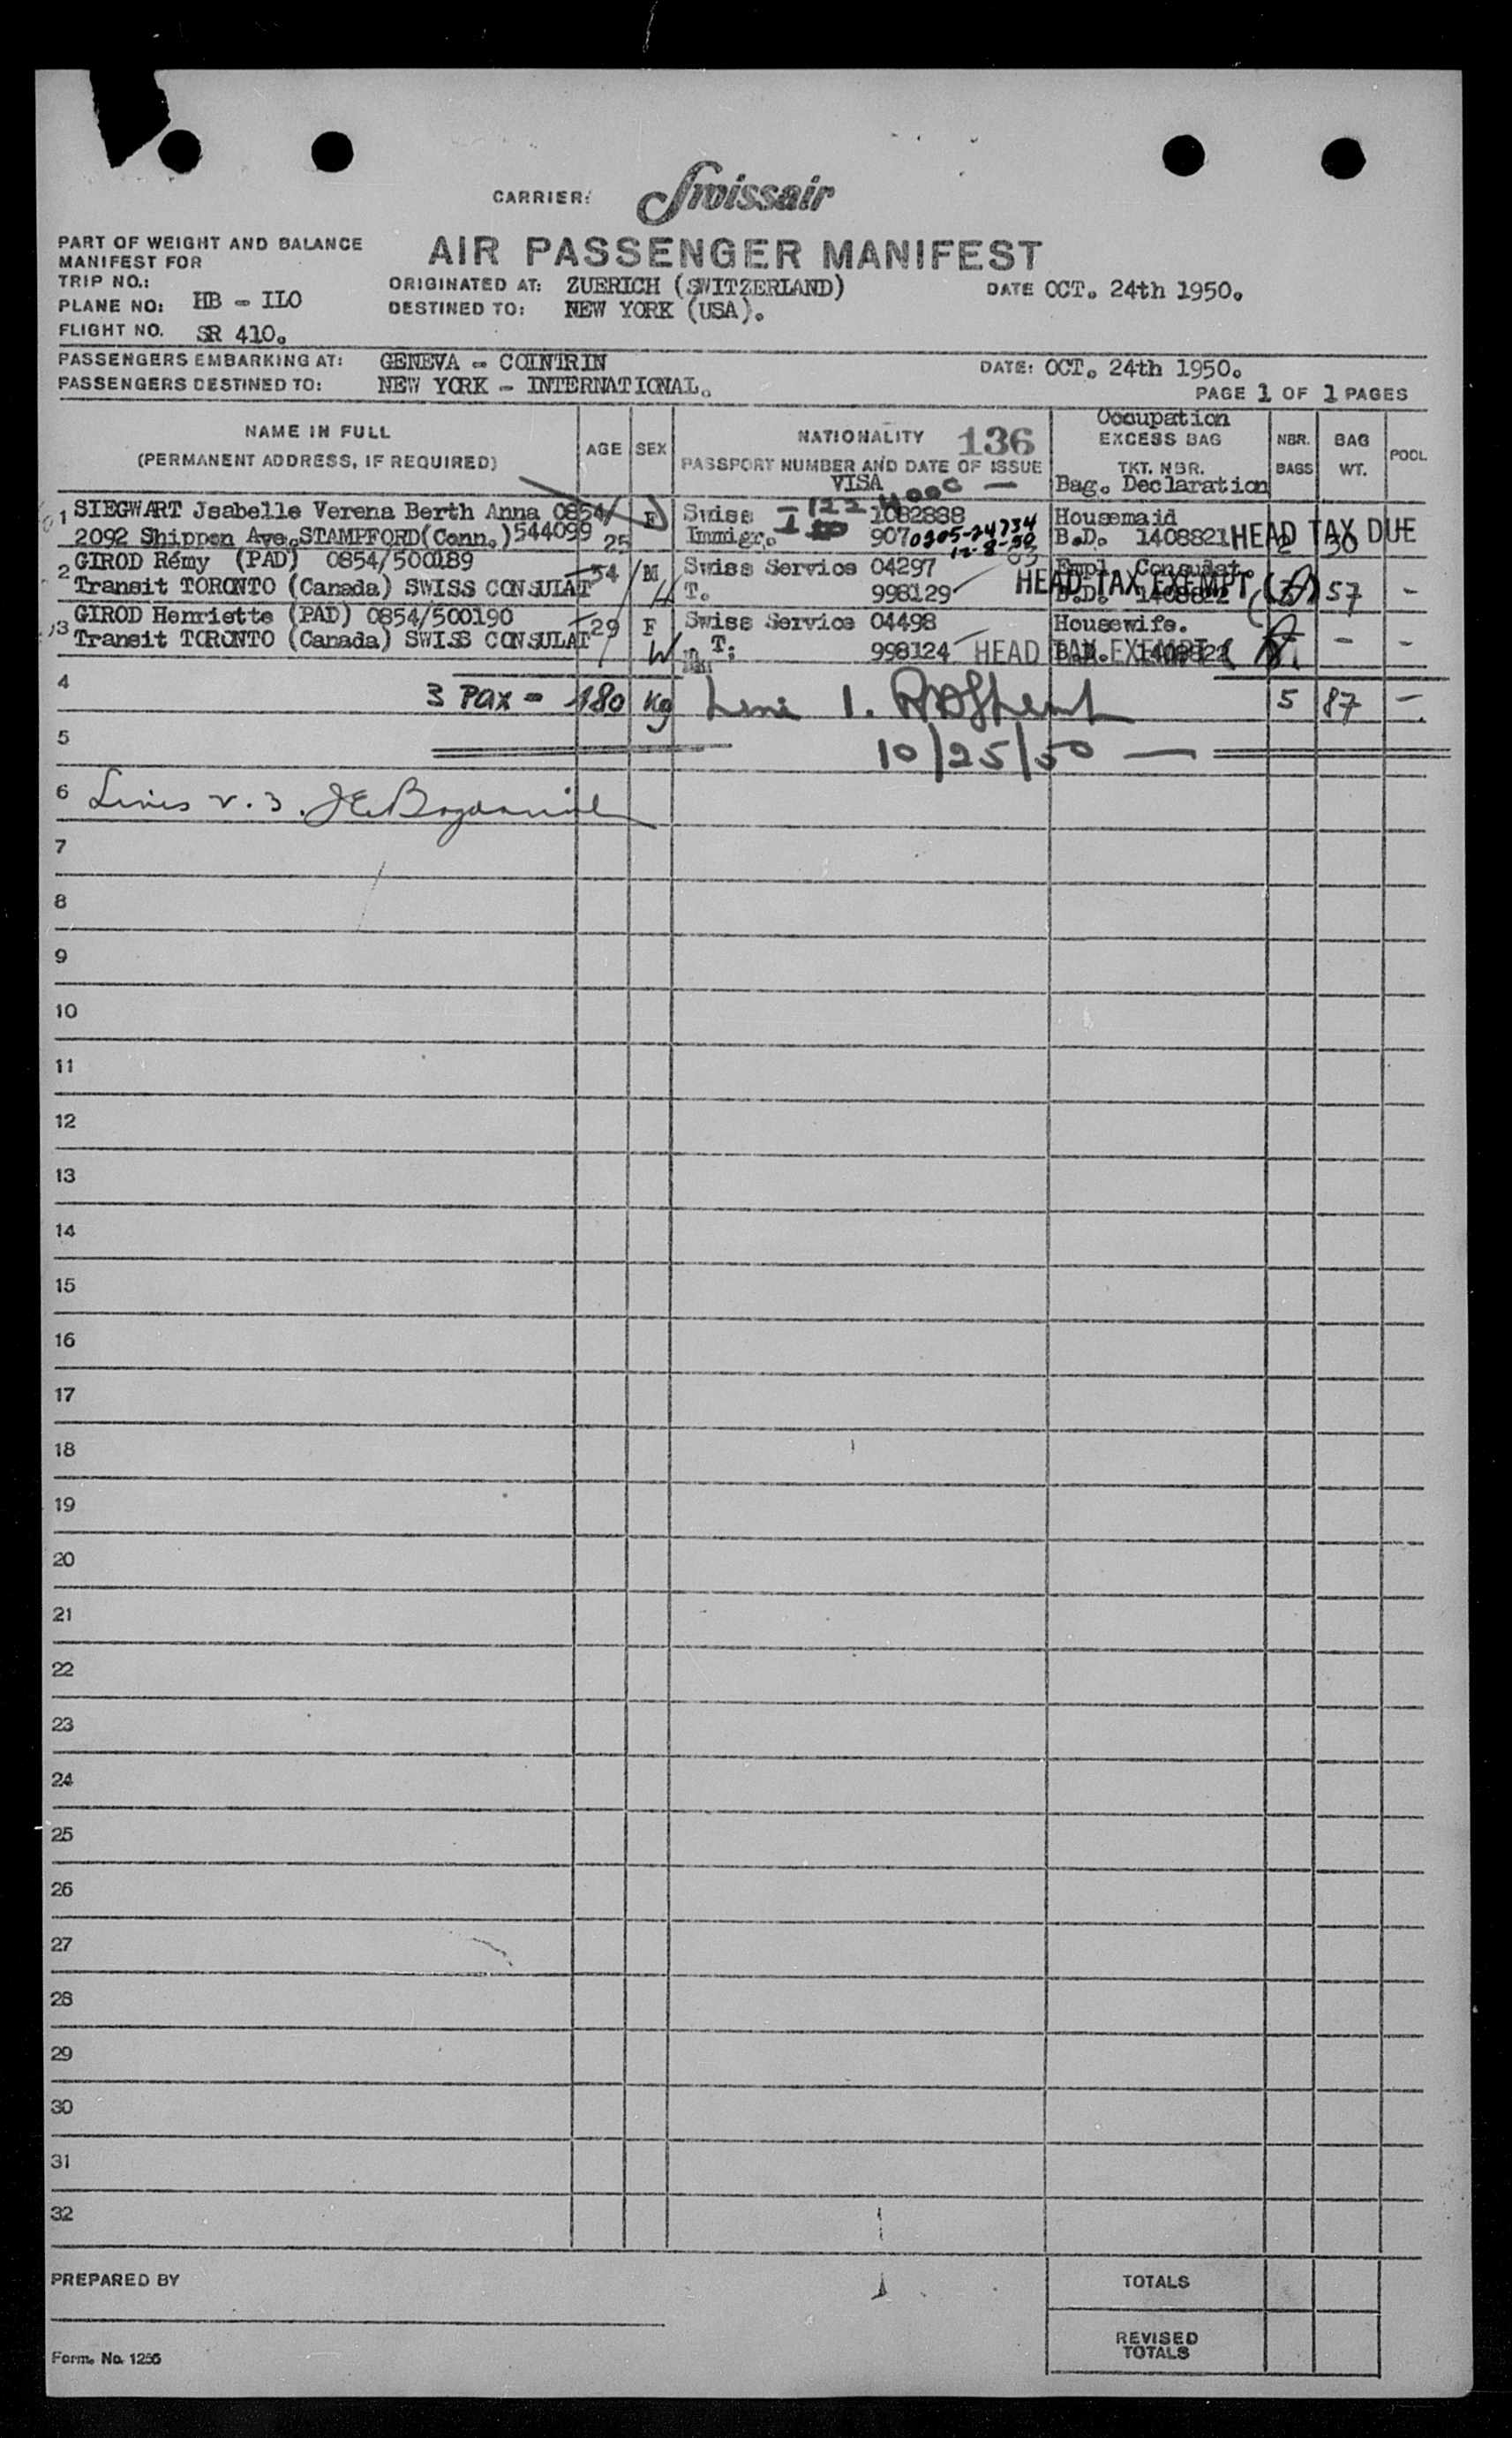 CARRIER: Swissair
AIR PASSENGER MANIFEST
PART OF WEIGHT AND BALANCE
MANIFEST FOR
TRIP NO.:
PLANE NO: HB - ILO
FLIGHT NO. SR 410.
ORIGINATED AT: ZUERICH (SWITZERLAND)
DESTINED TO: NEW YORK (USA).
DATE OCT. 24th 1950.
PASSENGERS EMBARKING AT: GENEVA - COINTRIN
DATE: OCT. 24th 1950.
PASSENGERS DESTINED TO: NEW YORK - INTERNATIONAL.
PAGE 1 OF 1 PAGES
NAME IN FULL
(PERMANENT ADDRESS, IF REQUIRED)
AGE
SEX
NATIONALITY 136
PASSPORT NUMBER AND DATE OF ISSUE
VISA
Occupation
EXCESS BAG
TKT. NBR.
Bag. Declaration
NBR.
BAGS
BAG
WT.
POOL
1 SIEGWART Jsabelle Verena Berth Anna 0854/ F Swiss 1082838 Housemaid
2092 Shippen Ave. STAMPFORD(Conn.) 544099 25 Immigr. 907 0205-24734 B.D. 1408821 HEAD TAX DUE
12-8-50
2 GIROD Rémy (PAD) 0854/500189 34 M Swiss Service 04297 Empl. Consulat.
Transit TORONTO (Canada) SWISS CONSULAT T. 998129 B.D. 1408822 HEAD TAX EXEMPT 57 -
3 GIROD Henriette (PAD) 0854/500190 29 F Swiss Service 04498 Housewife.
Transit TORONTO (Canada) SWISS CONSULAT W T. 998124 HEAD TAX EXEMPT B.D. 1408822 - -
4 3 Pax = 180 kg 5 87 -
5 10/25/50
6 Lines 2.3.
7
8
9
10
11
12
13
14
15
16
17
18
19
20
21
22
23
24
25
26
27
28
29
30
31
32
PREPARED BY
TOTALS
REVISED
TOTALS
Form. No. 1256